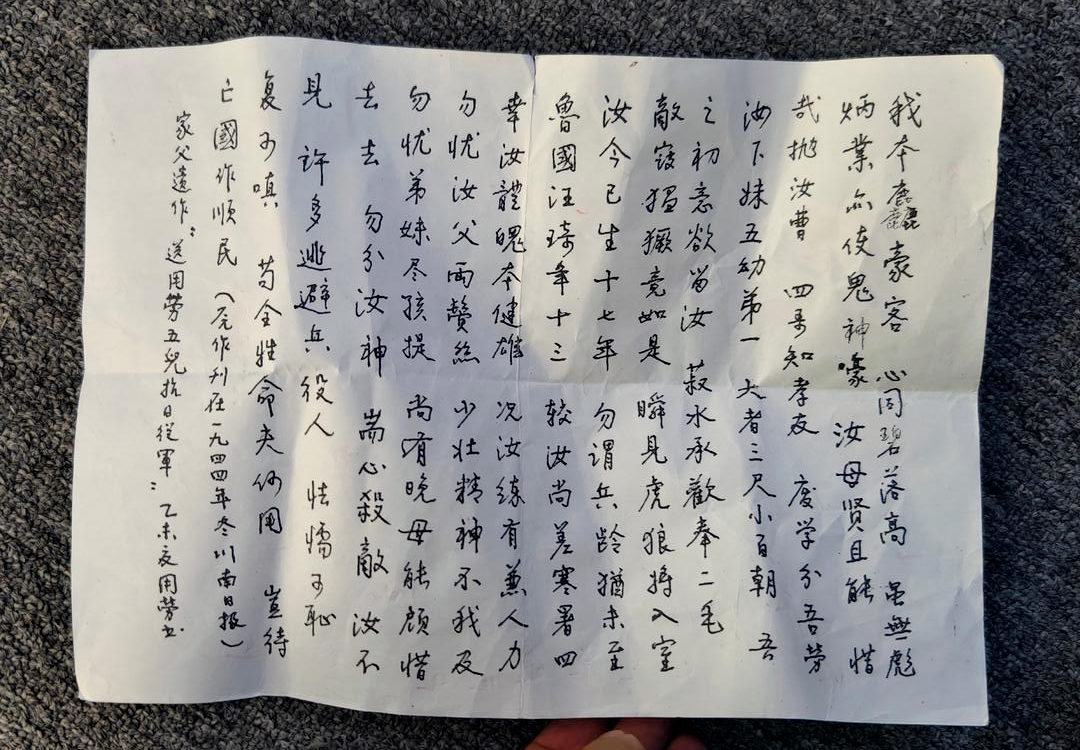 我本麤豪客 心同碧落高 虽無彪
炳業亦使鬼神嚎 汝母贤且能 惜
哉抛汝曹 四哥知孝友 废学分吾劳
汝下妹五幼弟一 大者三尺小百朝 吾
之初意欲留汝 菽水承歡奉二毛
敵寇猖獗竟如是 瞬見虎狼将入室
汝今已生十七年 勿谓兵龄猶未至
魯國汪琦年十三 较汝尚差寒暑四
幸汝體魄本健雄 况汝练有兼人力
勿忧汝父两鬓丝 少壮精神不我及
勿忧弟妹尽孩提 尚有晚母能顾惜
去去勿分汝神 耑心殺敵 汝不
見许多逃避兵役人 怯懦可恥
复可嗔 苟全性命夫何用 豈待
亡國作順民（原作刊在一九四四年冬川南日报）
家父遗作：送用劳五兒抗日從軍：乙未友用劳书